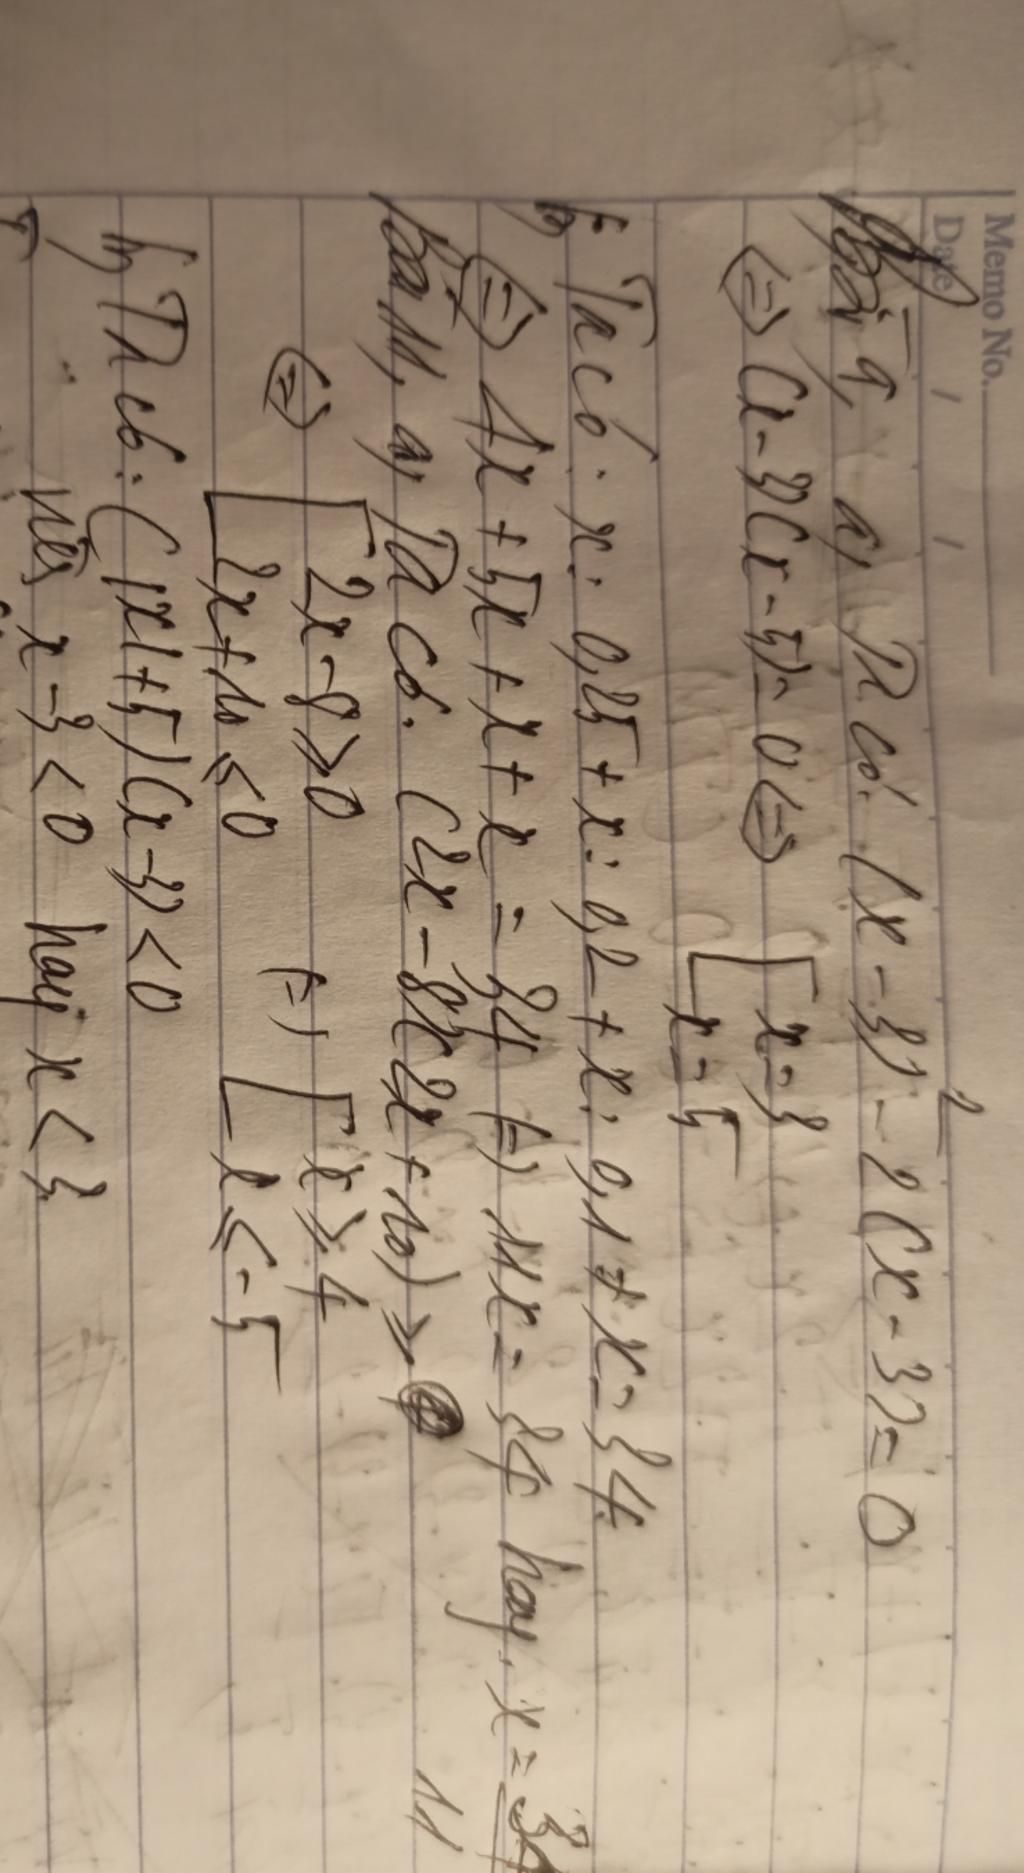 Memo No.
Date / /
Bài 9, a, Ta có: (x - 3)² - 2(x - 3) = 0
⇔ (x - 3)(x - 5) = 0 ⇔ [ x = 3
[ x = 5
b, Ta có: x : 0,25 + x : 0,2 + x : 0,1 + x = 34
⇔ 4x + 5x + x + x = 34 ⇔ 11x = 34 hay x = 34/11
Bài 11, a, Ta có: (2x - 8)(2x + 10) ≥
⇔ [ 2x - 8 ≥ 0 ⇔ [ x ≥ 4
[ 2x + 10 ≤ 0 [ x ≤ -5
b, Ta có: (|x| + 5)(x - 3) < 0
nên x - 3 < 0 hay x < 3